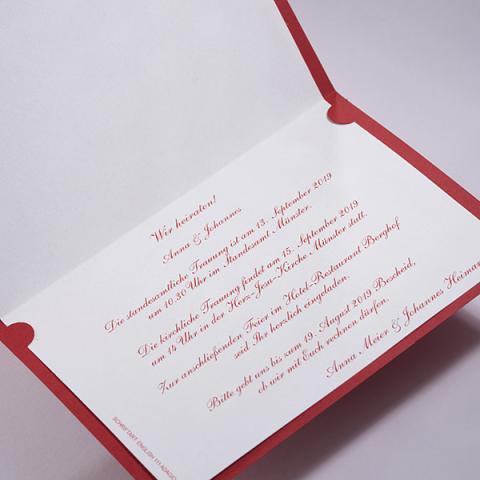 Wir heiraten!
Anna & Johannes
Die standesamtliche Trauung ist am 13. September 2019
um 10.30 Uhr im Standesamt Münster.
Die kirchliche Trauung findet am 15. September 2019
um 14 Uhr in der Herz-Jesu-Kirche Münster statt.
Zur anschließenden Feier im Hotel-Restaurant Berghof
seid Ihr herzlich eingeladen.
Bitte gebt uns bis zum 15. August 2019 Bescheid,
ob wir mit Euch rechnen dürfen.
Anna Meier & Johannes Heimann
SCHRIFTART: ENGLISH 111 ADAGIO